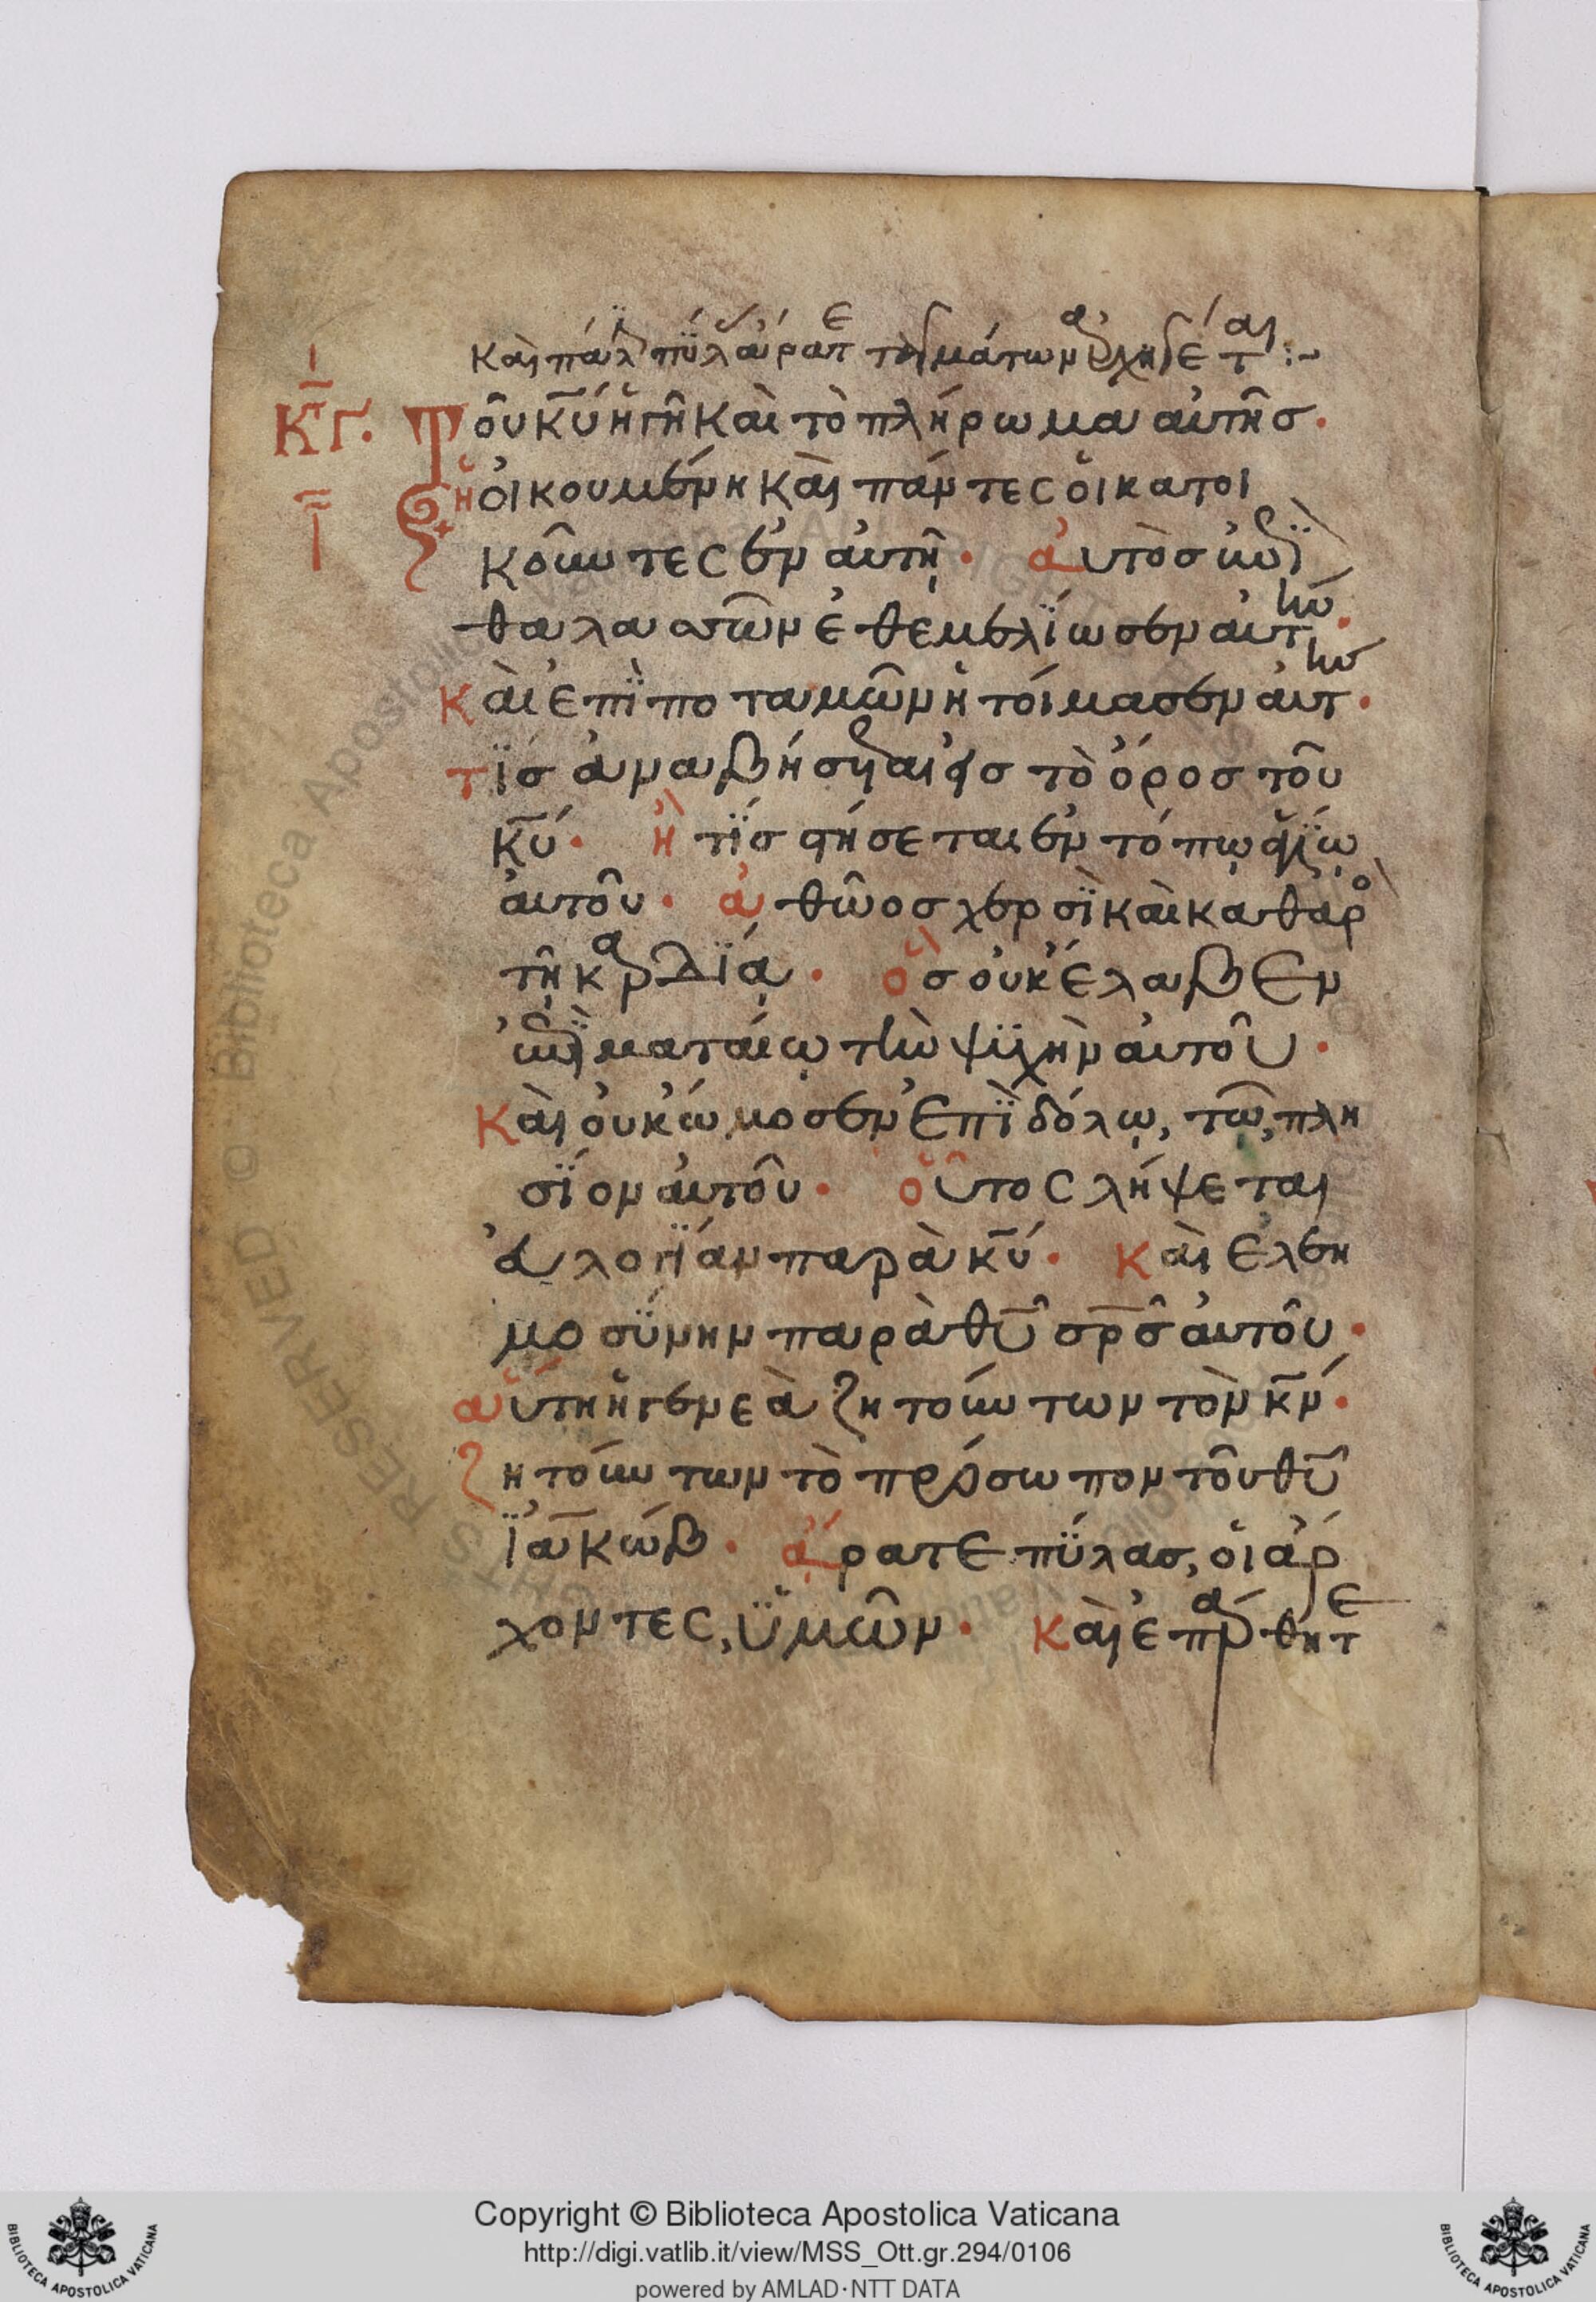 Καὶ πάλ πύλας ἄρατε τῶν ὀμμάτων
ΚΓ. Τοῦ κ̅υ̅ ἡ γῆ καὶ τὸ πλήρωμα αὐτῆσ·
ἡ οἰκουμένη καὶ πάντες οἱ κατοι
κοῦντες ἐν αὐτῇ· αὐτὸσ ἐπὶ
θαλασσῶν ἐθεμελίωσεν αὐτὴν·
Καὶ ἐπὶ ποταμῶν ἡτοίμασεν αὐτὴν·
τίσ ἀναβήσεται εἰσ τὸ ὄροσ τοῦ
κ̅υ̅· ἢ τίσ στήσεται ἐν τόπῳ ἁγίῳ
αὐτοῦ· ἀθῶοσ χερσὶ καὶ καθαρὸ
τῇ καρδίᾳ· ὃσ οὐκ ἔλαβεν
ἐπὶ ματαίῳ τὴν ψυχὴν αὐτοῦ·
Καὶ οὐκ ὤμοσεν ἐπὶ δόλῳ, τῶ, πλη
σίον αὐτοῦ· οὗτος λήψεται
ἐλογίαν παρὰ κ̅υ̅· Καὶ ἐλεη
μοσύνην παρὰ θ̅υ̅ σ̅ρ̅σ̅ αὐτοῦ·
αὕτη ἡ γενεὰ ζητούντων τὸν κ̅ν̅·
ζητούντων τὸ πρόσωπον τοῦ θ̅υ̅
ἰακώβ· ἄρατε πύλασ, οἱ ἄρ
χοντες, ὑμῶν· Καὶ ἐπάρθητε
RIGHTS RESERVED © Biblioteca Apostolica Vaticana
Copyright © Biblioteca Apostolica Vaticana
http://digi.vatlib.it/view/MSS_Ott.gr.294/0106
powered by AMLAD·NTT DATA
BIBLIOTECA APOSTOLICA VATICANA
BIBLIOTECA APOSTOLICA VATICANA